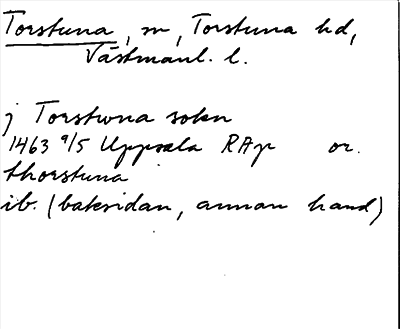 Torstuna, sn, Torstuna hd,
Västmanl. l.
j Torstwna sokn
1463 9/5 Uppsala RAp or.
thorstuna
ib. (baksidan, annan hand)